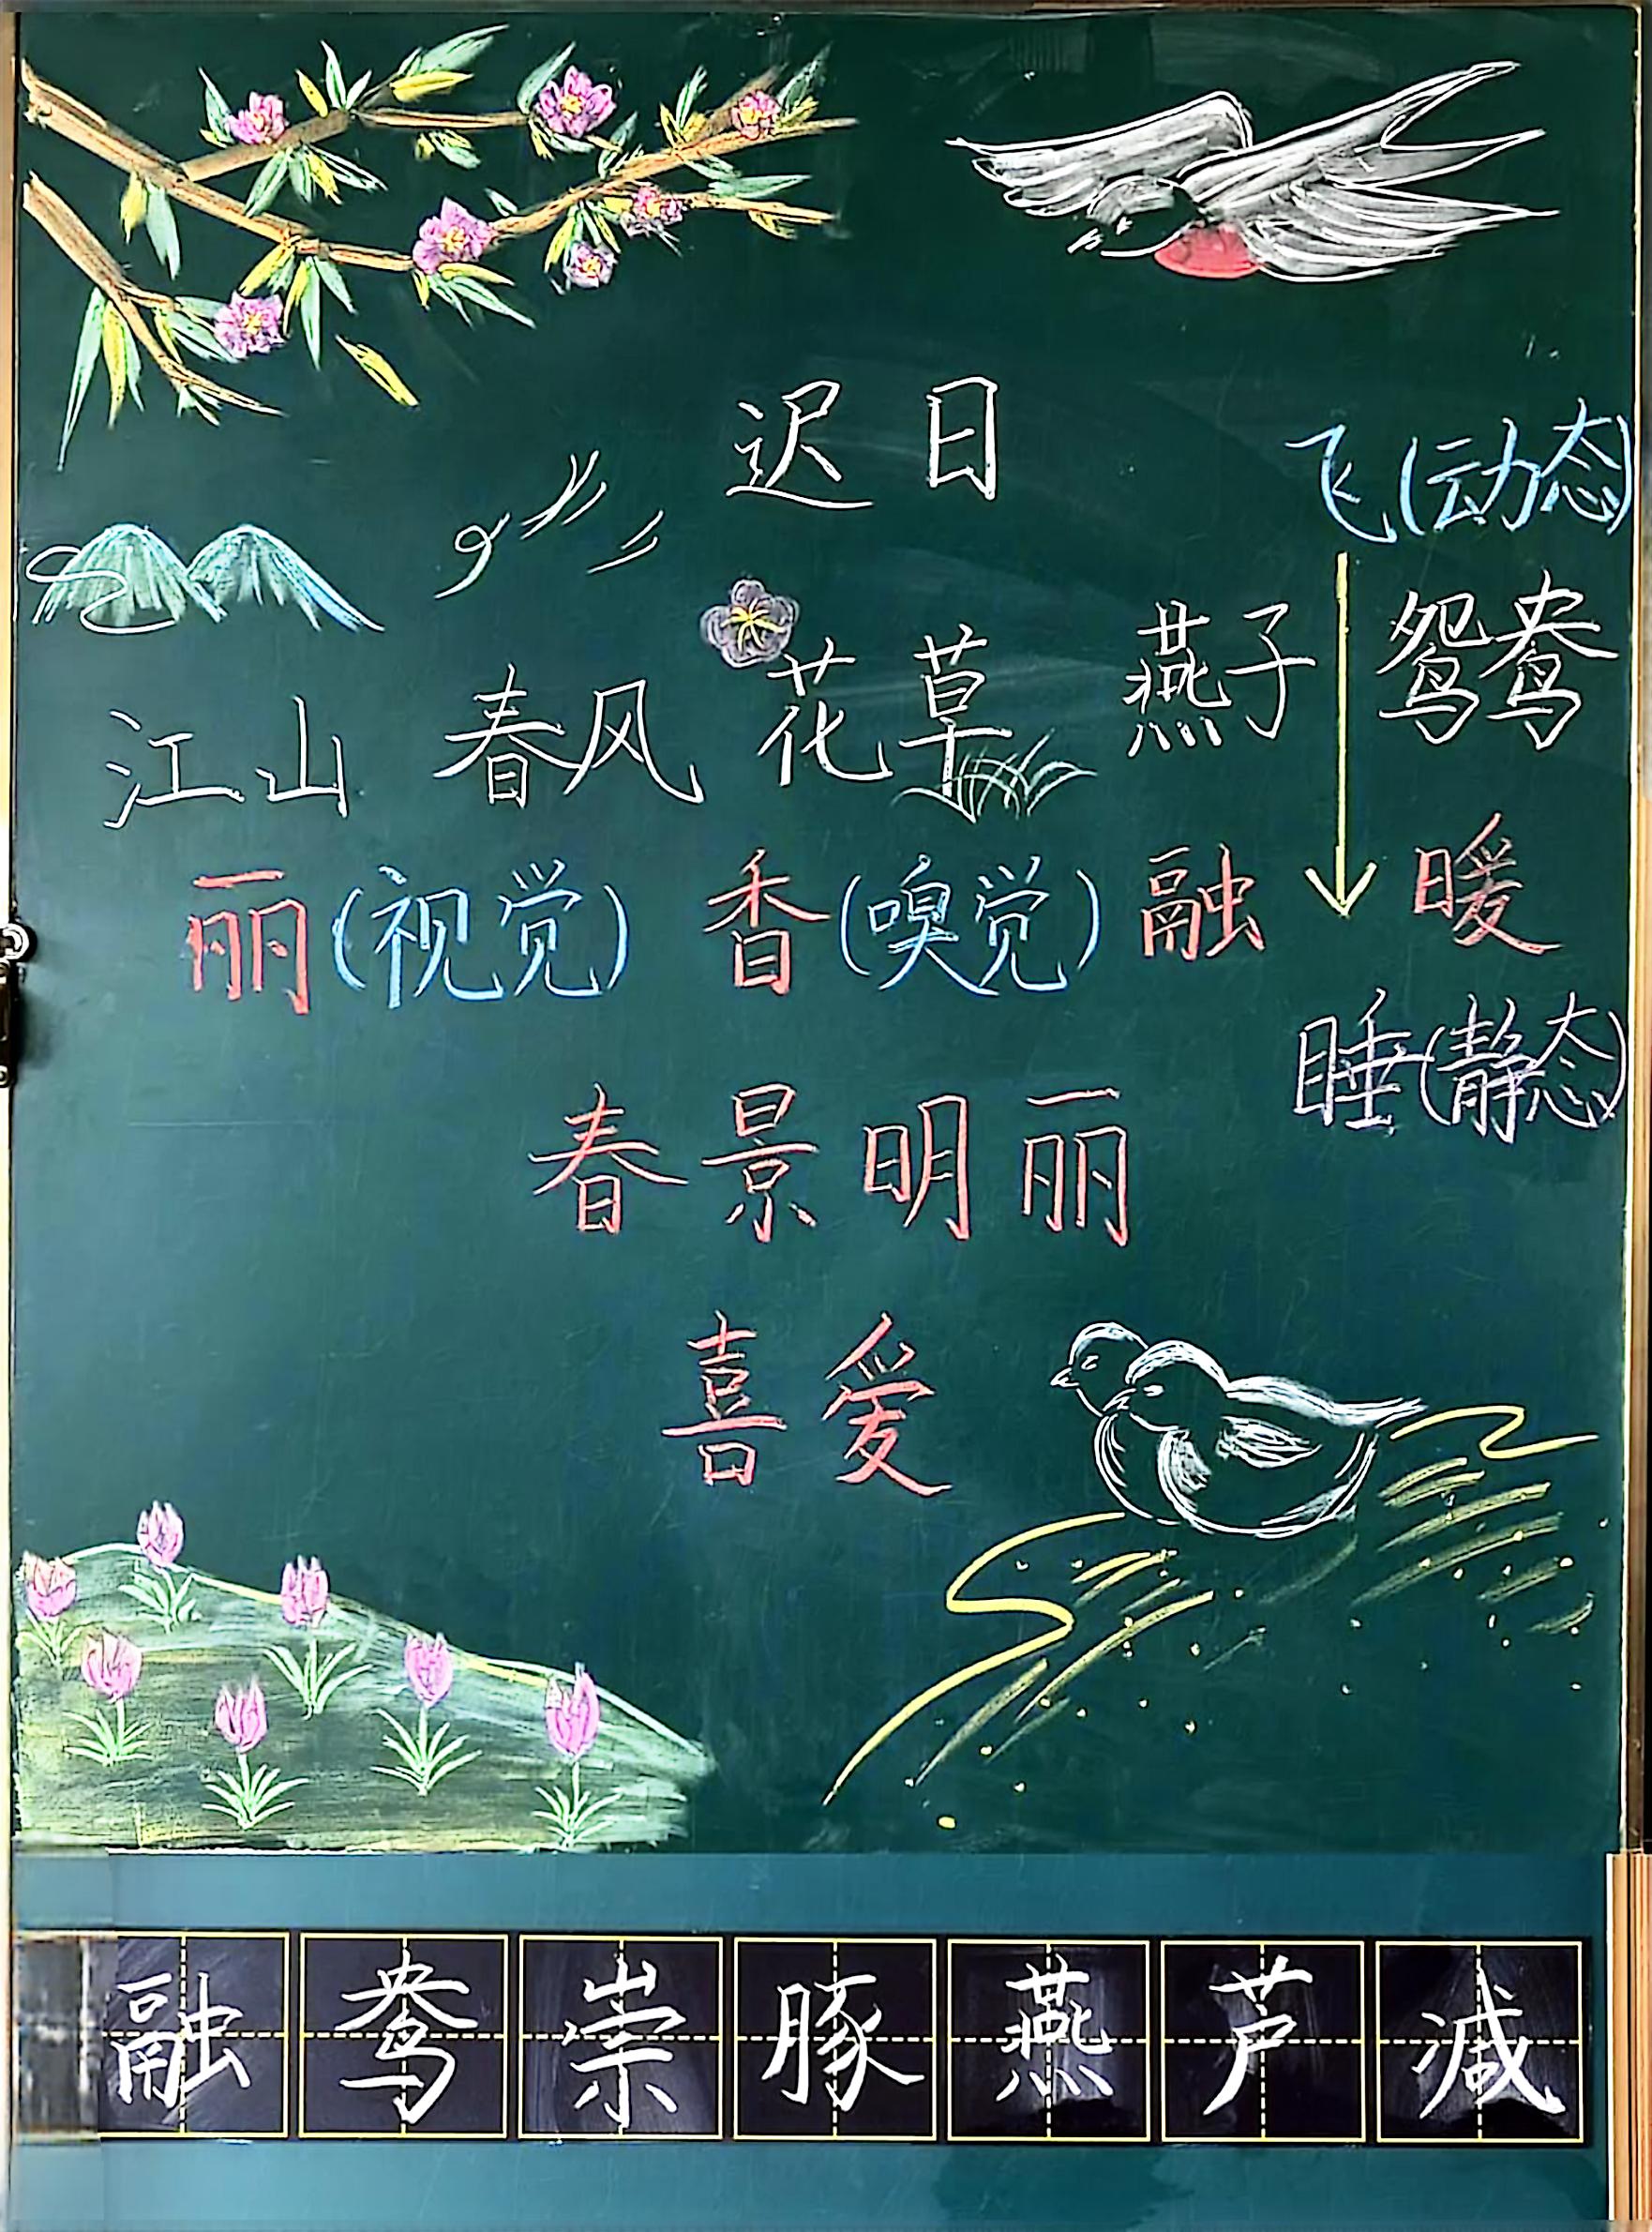 迟日
飞(动态)
江山 春风 花草 燕子 鸳鸯
丽(视觉) 香(嗅觉) 融 暖
睡(静态)
春景明丽
喜爱
融 鸯 崇 豚 燕 芦 减